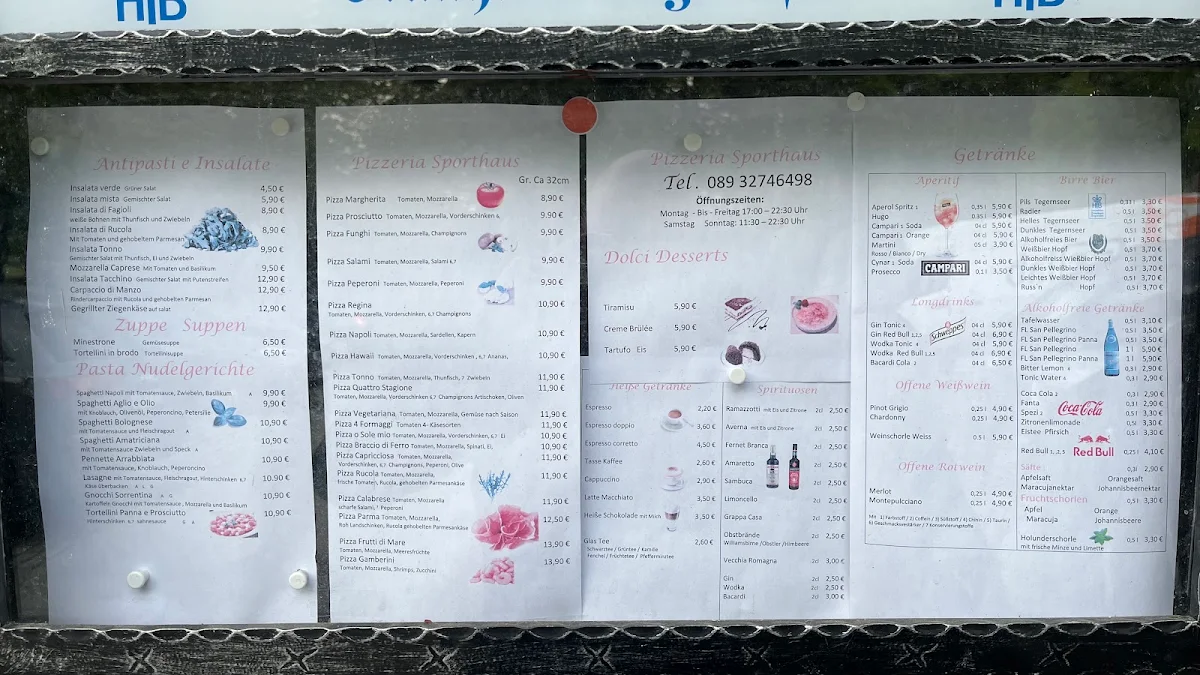 HTB
Antipasti e Insalate
Insalata verde Grüner Salat 4,50 €
Insalata mista Gemischter Salat 5,90 €
Insalata di Fagioli 8,90 €
weiße Bohnen mit Thunfisch und Zwiebeln
Insalata di Rucola 8,90 €
Mit Tomaten und gehobeltem Parmesan
Insalata Tonno 9,90 €
Gemischter Salat mit Thunfisch, Ei und Zwiebeln
Mozzarella Caprese Mit Tomaten und Basilikum 9,50 €
Insalata Tacchino Gemischter Salat mit Putenstreifen 12,90 €
Carpaccio di Manzo 12,90 €
Rindercarpaccio mit Rucola und gehobelten Parmesan
Gegrillter Ziegenkäse auf salat 12,90 €
Zuppe Suppen
Minestrone Gemüsesuppe 6,50 €
Tortellini in brodo Tortellinisuppe 6,50 €
Pasta Nudelgerichte
Spaghetti Napoli mit Tomatensauce, Zwiebeln, Basilikum A 9,90 €
Spaghetti Aglio e Olio 9,90 €
mit Knoblauch, Olivenöl, Peperoncino, Petersilie
Spaghetti Bolognese 10,90 €
mit Tomatensauce und Fleischragout A
Spaghetti Amatriciana
mit Tomatensauce Zwiebeln und Speck A 10,90 €
Pennette Arrabbiata 10,90 €
mit Tomatensauce, Knoblauch, Peperoncino
Lasagne mit Tomatensauce, Fleischragout, Hinterschinken 6,7 10,90 €
Käse überbacken A L G
Gnocchi Sorrentina A G 10,90 €
Kartoffeln Gnocchi mit Tomatensauce, Mozzarella und Basilikum
Tortellini Panna e Prosciutto 10,90 €
Hinterschinken 6,7 Sahnesauce
Pizzeria Sporthaus
Gr. Ca 32cm
Pizza Margherita Tomaten, Mozzarella 8,90 €
Pizza Prosciutto Tomaten, Mozzarella, Vorderschinken 6, 9.90 €
Pizza Funghi Tomaten, Mozzarella, Champignons 9,90 €
Pizza Salami Tomaten, Mozzarella, Salami 6,7 9,90 €
Pizza Peperoni Tomaten, Mozzarella, Peperoni 9,90 €
Pizza Regina 10,90 €
Tomaten, Mozzarella, Vorderschinken, 6,7 Champignons
Pizza Napoli Tomaten, Mozzarella, Sardellen, Kapern 10,90 €
Pizza Hawaii Tomaten, Mozzarella, Vorderschinken , 6,7 Ananas, 10,90 €
Pizza Tonno Tomaten, Mozzarella, Thunfisch, 7 Zwiebeln 11,90 €
Pizza Quattro Stagione 11,90 €
Tomaten, Mozzarella, Vorderschinken 6,7 Champignons Artischoken, Oliven
Pizza Vegetariana Tomaten, Mozzarella, Gemüse nach Saison 11,90 €
Pizza 4 Formaggi Tomaten 4- Käsesorten. 11,90 €
Pizza o Sole mio Tomaten, Mozzarella, Vorderschinken, 6,7 Ei 10,90 €
Pizza Braccio di Ferro Tomaten, Mozzarella, Spinati, Ei, 10,90 €
Pizza Capricciosa Tomaten, Mozzarella, 11,90 €
Vorderschinken, 6,7 Champignons, Peperoni, Olive
Pizza Rucola Tomaten, Mozzarella, 11,90 €
frische Tomaten, Rucola, gehobelten Parmesankäse
Pizza Calabrese Tomaten, Mozzarella 11,90 €
scharfe Salami, 7 Peperoni
Pizza Parma Tomaten, Mozzarella, 12,50 €
Roh Landschinken, Rucola gehobelten Parmesankäse
Pizza Frutti di Mare 13,90 €
Tomaten, Mozzarella, Meeresfrüchte
Pizza Gamberini 13,90 €
Tomaten, Mozzarella, Shrimps, Zucchini
Pizzeria Sporthaus
Tel. 089 32746498
Öffnungszeiten:
Montag - Bis - Freitag 17:00 – 22:30 Uhr
Samstag Sonntag: 11:30 – 22:30 Uhr
Dolci Desserts
Tiramisu 5,90 €
Creme Brülée 5,90 €
Tartufo Eis 5,90 €
Heiße Getränke
Espresso 2,20 €
Espresso doppio 3,60 €
Espresso corretto 4,50 €
Tasse Kaffee 2,60 €
Cappuccino 2,90 €
Latte Macchiato 3,50 €
Heiße Schokolade mit Milch 3,50 €
Glas Tee 2,60 €
Schwarztee / Grüntee / Kamille
Fenchel / Früchtetee / Pfefferminztee
Spirituosen
Ramazzotti mit Eis und Zitrone 2cl 2,50 €
Averna mit Eis und Zitrone 2cl 2,50 €
Fernet Branca 2cl 2,50 €
Amaretto 2cl 2,50 €
Sambuca 2cl 2,50 €
Limoncello 2cl 2,50 €
Grappa Casa 2cl 2,50 €
Obstbrände 2cl 2,50 €
Williamsbirne /Obstler /Himbeere
Vecchia Romagna 2cl 3,00 €
Gin 2cl 2,50 €
Wodka 2cl 2,50 €
Bacardi 2cl 3,00 €
Getränke
Aperitif
Aperol Spritz 1 0,35 l 5,90 €
Hugo 0,35 l 5,90 €
Campari 1 Soda 04 cl 5,90 €
Campari 1 Orange 04 cl 5,90 €
Martini 05 cl 3,90 €
Rosso / Bianco / Dry
Cynar 1 Soda 04 cl 5,90 €
Prosecco 0,1 l 3,50 €
CAMPARI
Longdrinks
Schweppes
Gin Tonic 4 04 cl 5,90 €
Gin Red Bull 1,2,5 04 cl 6,90 €
Wodka Tonic 4 04 cl 5,90 €
Wodka Red Bull 1,2,5 04 cl 6,90 €
Bacardi Cola 2 04 cl 6,50 €
Offene Weißwein
Pinot Grigio 0,25 l 4,90 €
Chardonny 0,25 l 4,90 €
Weinschorle Weiss 0,5 l 5,90 €
Offene Rotwein
Merlot 0,25 l 4,90 €
Montepulcciano 0,25 l 4,90 €
Birre Bier
Pils Tegernseer 3,30 €
Radler 0,5 l 3,50 €
Helles Tegernseer 0,5 l 3,50 €
Dunkles Tegernseer 0,5 l 3,50 €
Alkoholfreies Bier 0,5 l 3,50 €
Weißbier Hopf 0,5 l 3,70 €
Alkoholfreiss Wießbier Hopf 0,5 l 3,70 €
Dunkles Weißbier Hopf 0,5 l 3,70 €
Leichtes Weißbier Hopf 0,5 l 3,70 €
Russ'n Hopf 0,5 l 3,70 €
Alkoholfreie Getränke
Tafelwasser 0,5 l 3,10 €
Fl. San Pellegrino 0,5 l 3,50 €
FL San Pellegrino Panna 0,5 l 3,50 €
FL San Pellegrino 1 l 5,90 €
FL San Pellegrino Panna 1 l 5,90 €
Bitter Lemon 4 0,3 l 2,90 €
Tonic Water 4 0,3 l 2,90 €
Coca Cola 2 0,3 l 2,90 €
Fanta 0,3 l 2,90 €
Spezi 2 0,5 l 3,30 €
Zitronenlimonade 0,5 l 3,30 €
Eistee Pfirsich 0,5 l 3,30 €
Coca-Cola
Red Bull 1, 2,5 Red Bull 0,25 l 4,10 €
Säfte : 0,3l 2,90 €
Apfelsaft Orangesaft
Maracujanektar Johannisbeenektar
Fruchtschorlen 0,5 l 3,30 €
Apfel Orange
Maracuja Johannisbeere
Holunderschorle 0,5 l 3,30 €
mit frische Minze und Limette